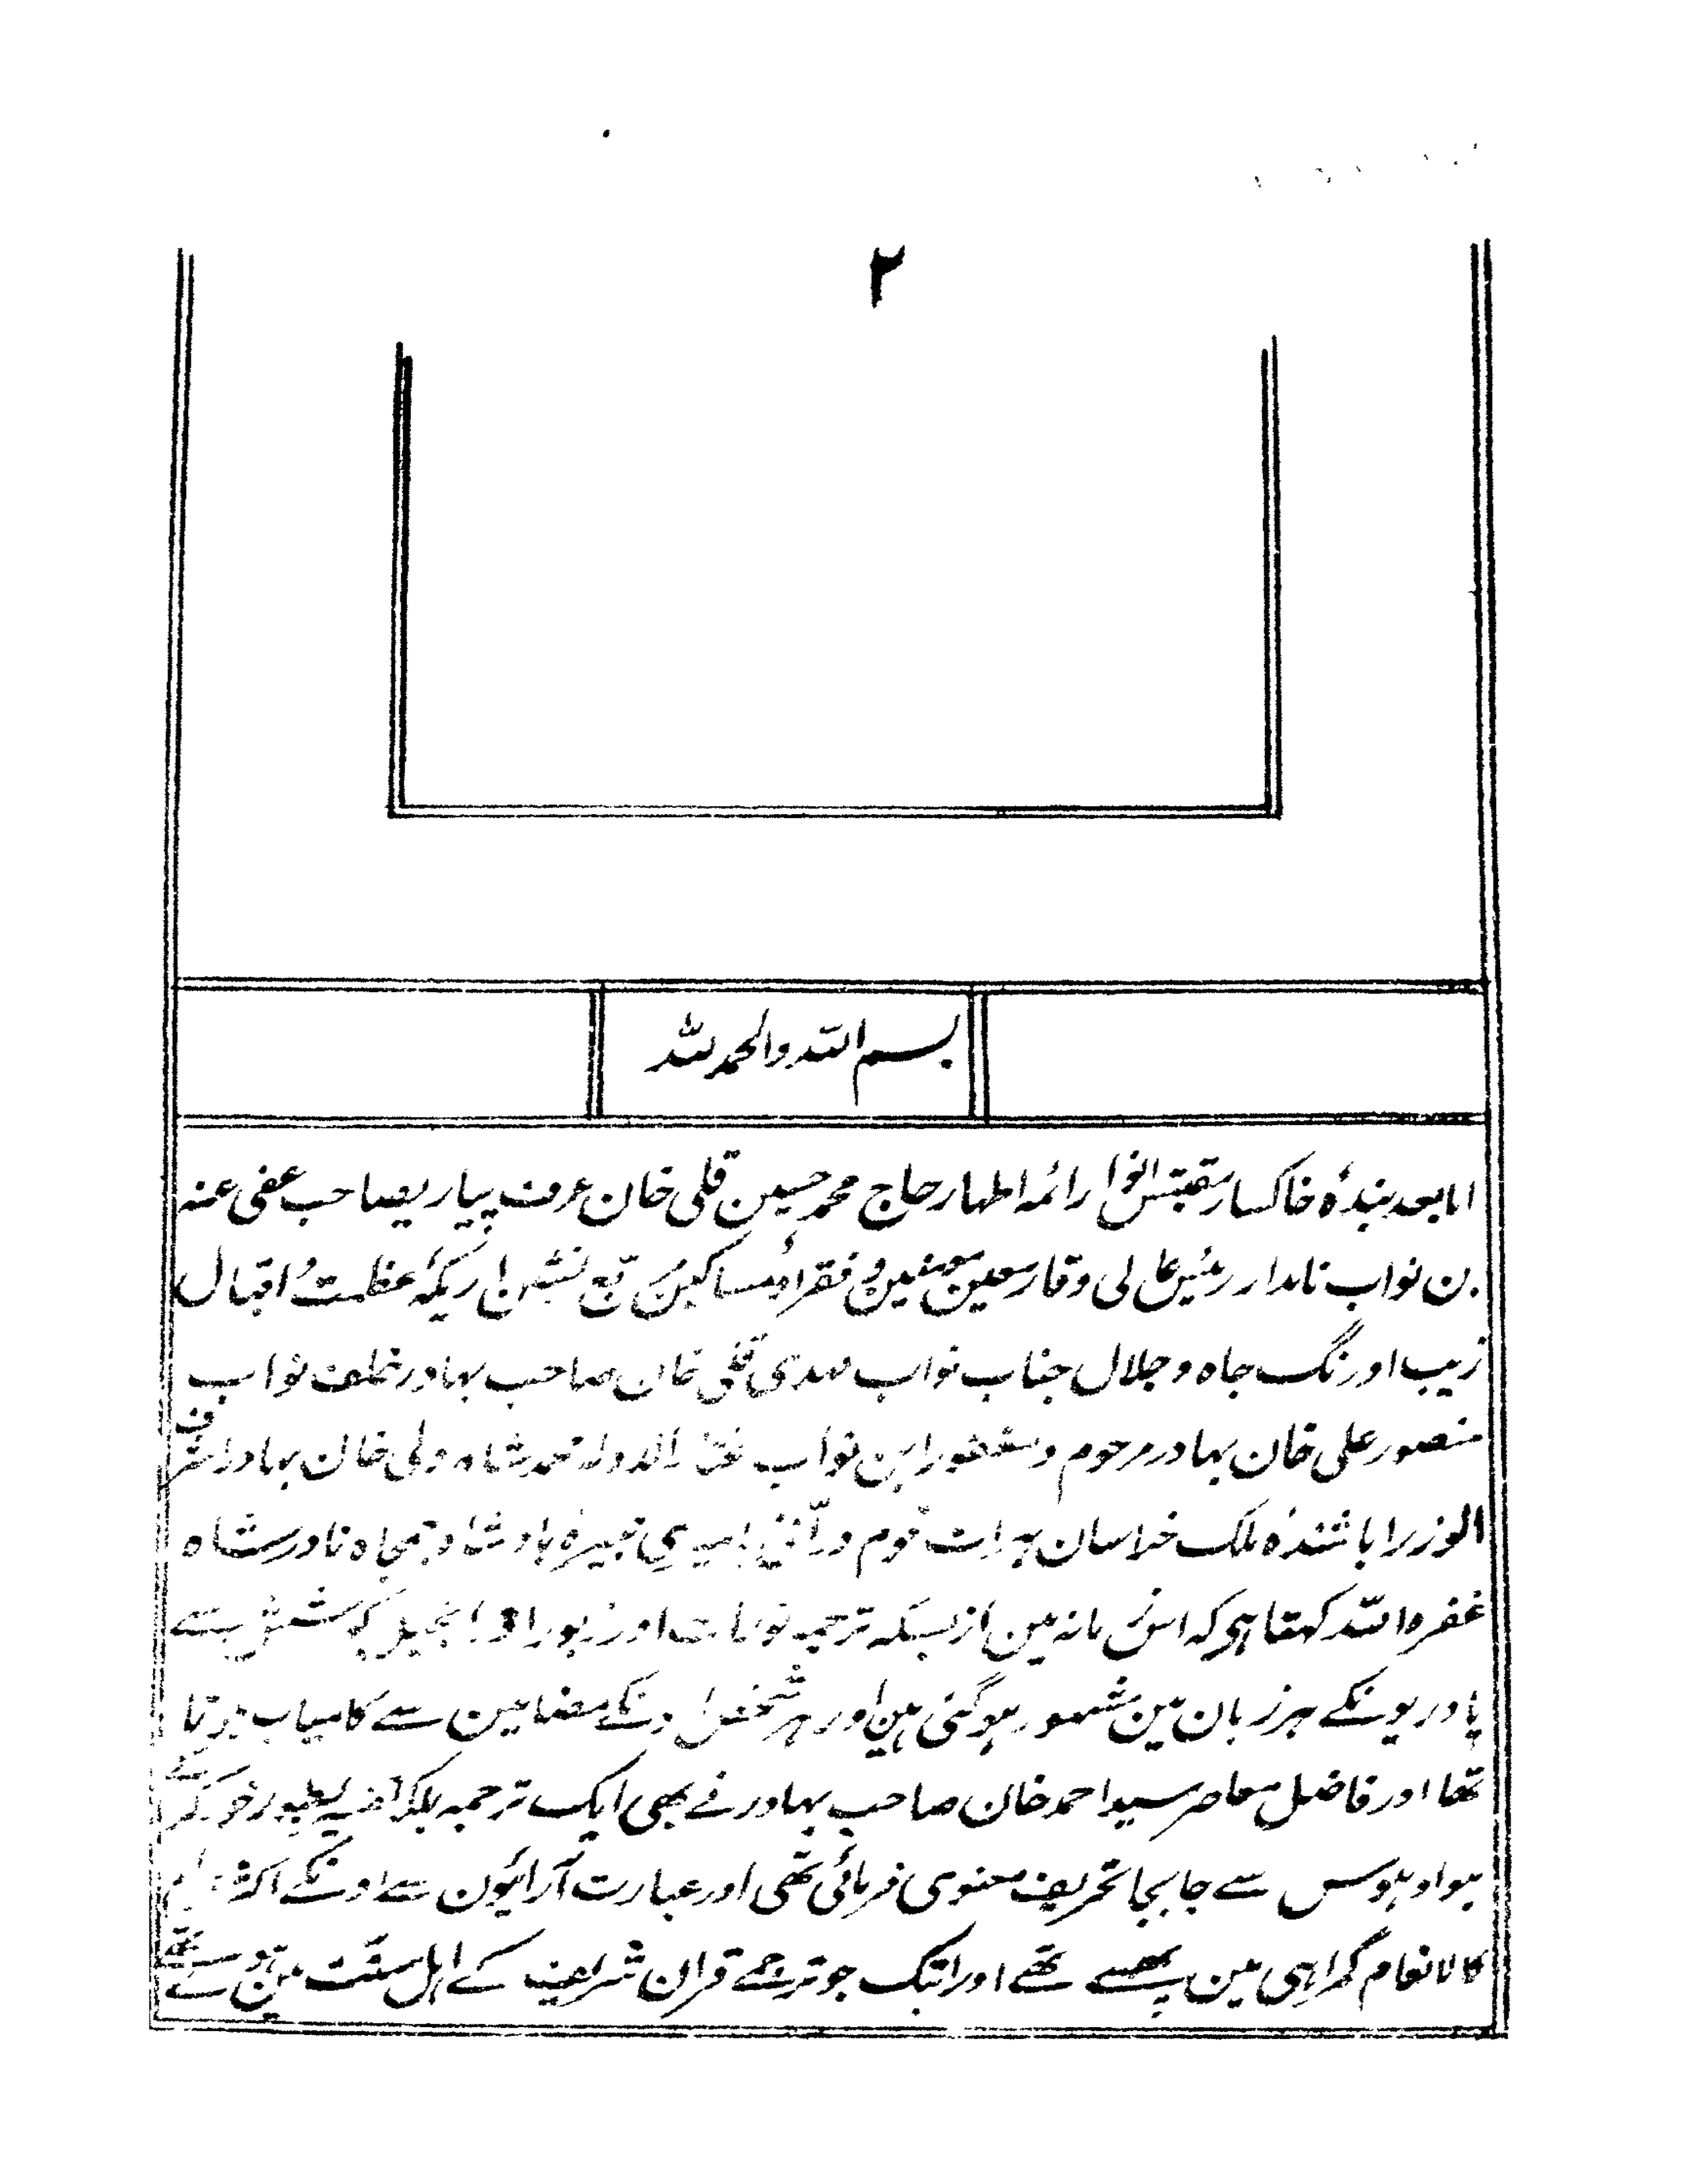 ۲
بسم اللہ والحمد للہ
اما بعد بندۂ خاکسار مقتبس انوار ائمہ اطہار حاج محمد حسین قلی خان عرف پیاریصاحب عفی عنہ
بن نواب نامدار رئیس عالی وقار معین مومنین و فقرا و مساکین اریکۂ عظمت و اقبال
زیب اورنگ جاہ و جلال جناب نواب مہدی قلی خان صاحب بہادر خلف نواب
منصور علی خان بہادر مرحوم و مغفور ابن نواب الدولہ محمد شاہ ولی خان بہادر اشرف
الوزرا باشندہ ملک خراسان ہرات قوم درانی نبیرۂ بادشاہ جمجاہ نادر شاہ
غفرہ اللہ کہتا ہی کہ اس زمانہ مین ازبسکہ ترجمہ تورات اور زبور اور انجیل کوشش سے
پادریونکے ہر زبان مین مشہور ہوگئی ہین اور ہر شخص اونکے مضامین سے کامیاب ہوتا
تھا اور فاضل معاصر سید احمد خان صاحب بہادر نے بھی ایک ترجمہ بلکہ بطور خود کرکے
ہوا و ہوس سے جابجا تحریف معنوی فرمائی تھی اور عبارت آرائیون سے اونکے اکثر
کالانعام گمراہی مین پھسے تھے اور ابتک جو ترجمے قران شریف کے اہل سنت مین ہوے تھے